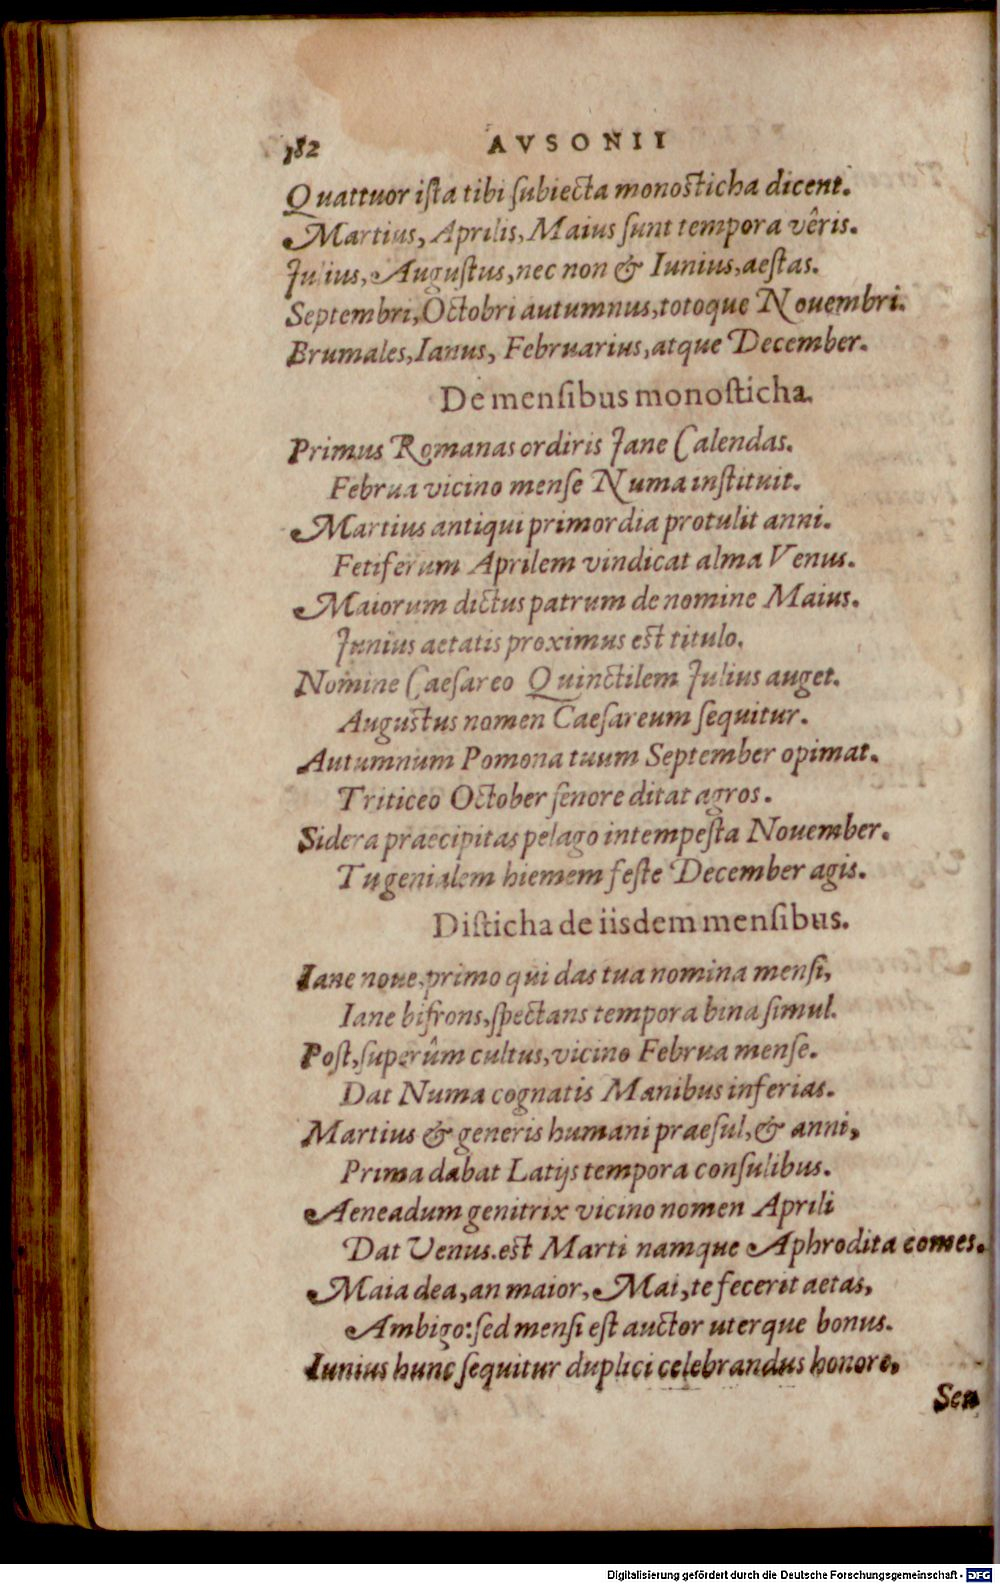 182 AVSONII
Quattuor iſta tibi ſubiecta monosticha dicent.
Martius, Aprilis, Maius ſunt tempora vêris.
Julius, Auguſtus, nec non & Iunius, aeſtas.
Septembri, Octobri autumnus, totoque Nouembri.
Brumales, Ianus, Februarius, atque December.
De menſibus monoſticha.
Primus Romanas ordiris Jane Calendas.
Februa vicino menſe Numa inſtituit.
Martius antiqui primordia protulit anni.
Fetiferum Aprilem vindicat alma Venus.
Maiorum dictus patrum de nomine Maius.
Junius aetatis proximus est titulo.
Nomine Caeſareo Quinctilem Julius auget.
Augustus nomen Caeſareum ſequitur.
Autumnum Pomona tuum September opimat.
Triticeo October fenore ditat agros.
Sidera praecipitas pelago intempeſta Nouember.
Tu genialem hiemem feſte December agis.
Diſticha de iisdem menſibus.
Iane noue, primo qui das tua nomina menſi,
Iane bifrons, ſpectans tempora bina ſimul.
Poſt, ſuperûm cultus, vicino Februa menſe.
Dat Numa cognatis Manibus inferias.
Martius & generis humani praeſul, & anni,
Prima dabat Latijs tempora conſulibus.
Aeneadum genitrix vicino nomen Aprili
Dat Venus. est Marti namque Aphrodita comes.
Maia dea, an maior, Mai, te fecerit aetas,
Ambigo: ſed menſi eſt auctor uterque bonus.
Iunius hunc ſequitur duplici celebrandus honore,
Seu
Digitalisierung gefördert durch die Deutsche Forschungsgemeinschaft - DFG